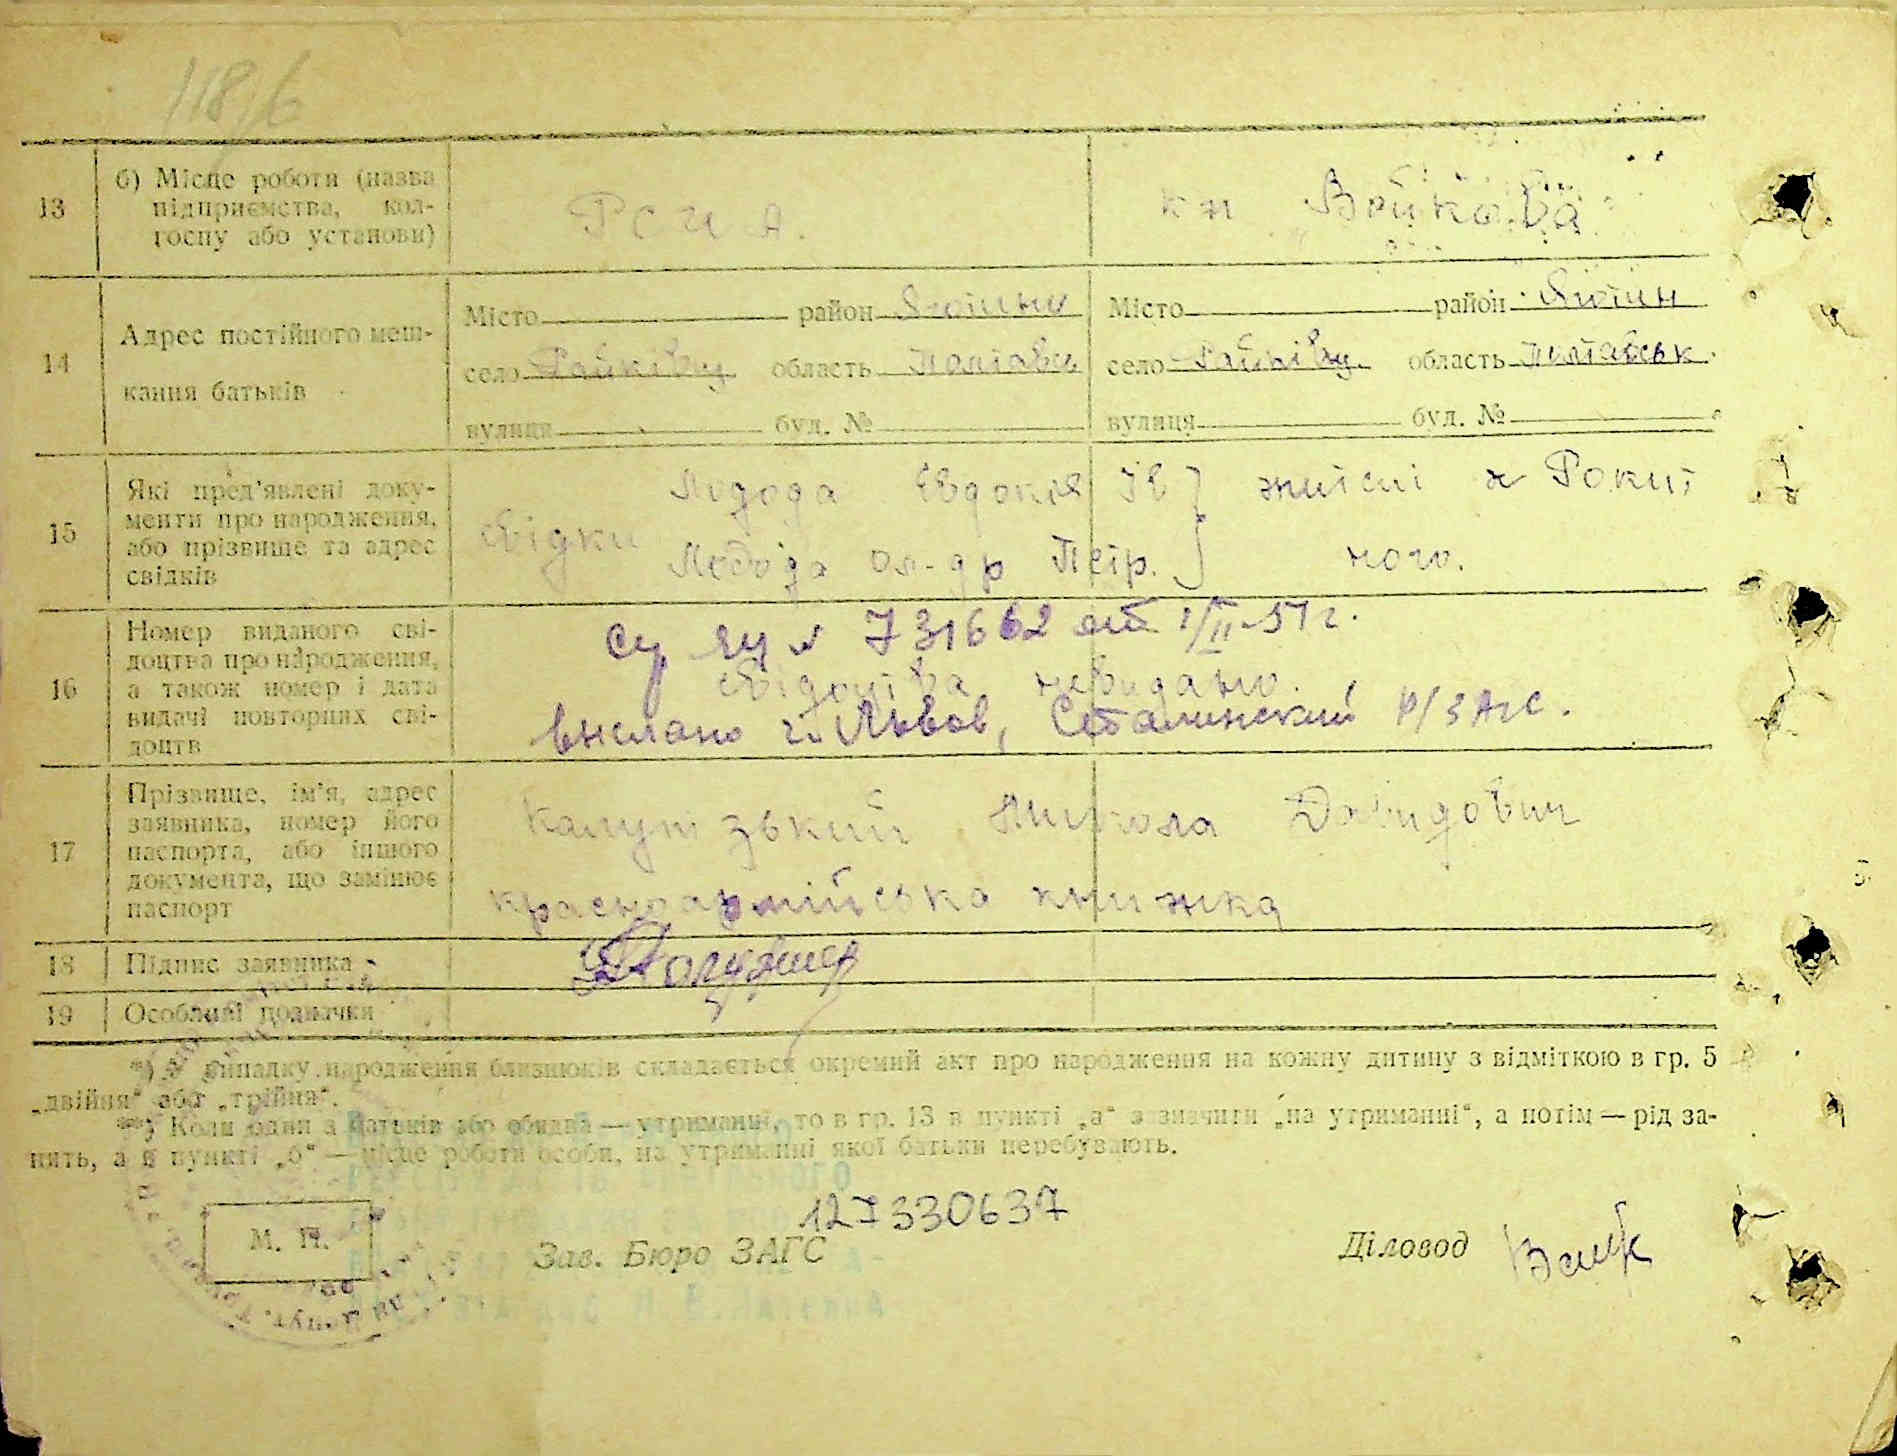 118/6
13
б) Місце роботи (назва
підприємства, кол-
госпу або установи)
РСЧА.
кп Войкова
14
Адрес постійного меш-
кання батьків
Місто район
село область Полтавсь
вулиця буд. №
Місто район Яготин
село область Полтавськ.
вулиця буд. №
15
Які пред'явлені доку-
менти про народження,
або прізвище та адрес
свідків
свідки
Лебеда Євдокія Ів } жителі х Рокит
Лебеда Ол-др Петр. } ного.
16
Номер виданого сві-
доцтва про народження,
а також номер і дата
видачі повторних сві-
доцтв
731662 от 1/II-51 г.
свідоцтва невидано.
выслано г. Львов, Сталинский Р/ЗАГС.
17
Прізвище, ім'я, адрес
заявника, номер його
паспорта, або іншого
документа, що замінює
паспорт
Микола Давидович
красноармійська книжка
18
Підпис заявника
19
Особливі позначки
*) У випадку народження близнюків складається окремий акт про народження на кожну дитину з відміткою в гр. 5
„двійня“ або „трійня“.
**) Коли один з батьків або обидва — утриманні, то в гр. 13 в пункті „а“ зазначити „на утриманні“, а потім — рід за-
нять, а в пункті „б“ — місце роботи особи, на утриманні якої батьки перебувають.
127330637
М. П.
Зав. Бюро ЗАГС
Діловод